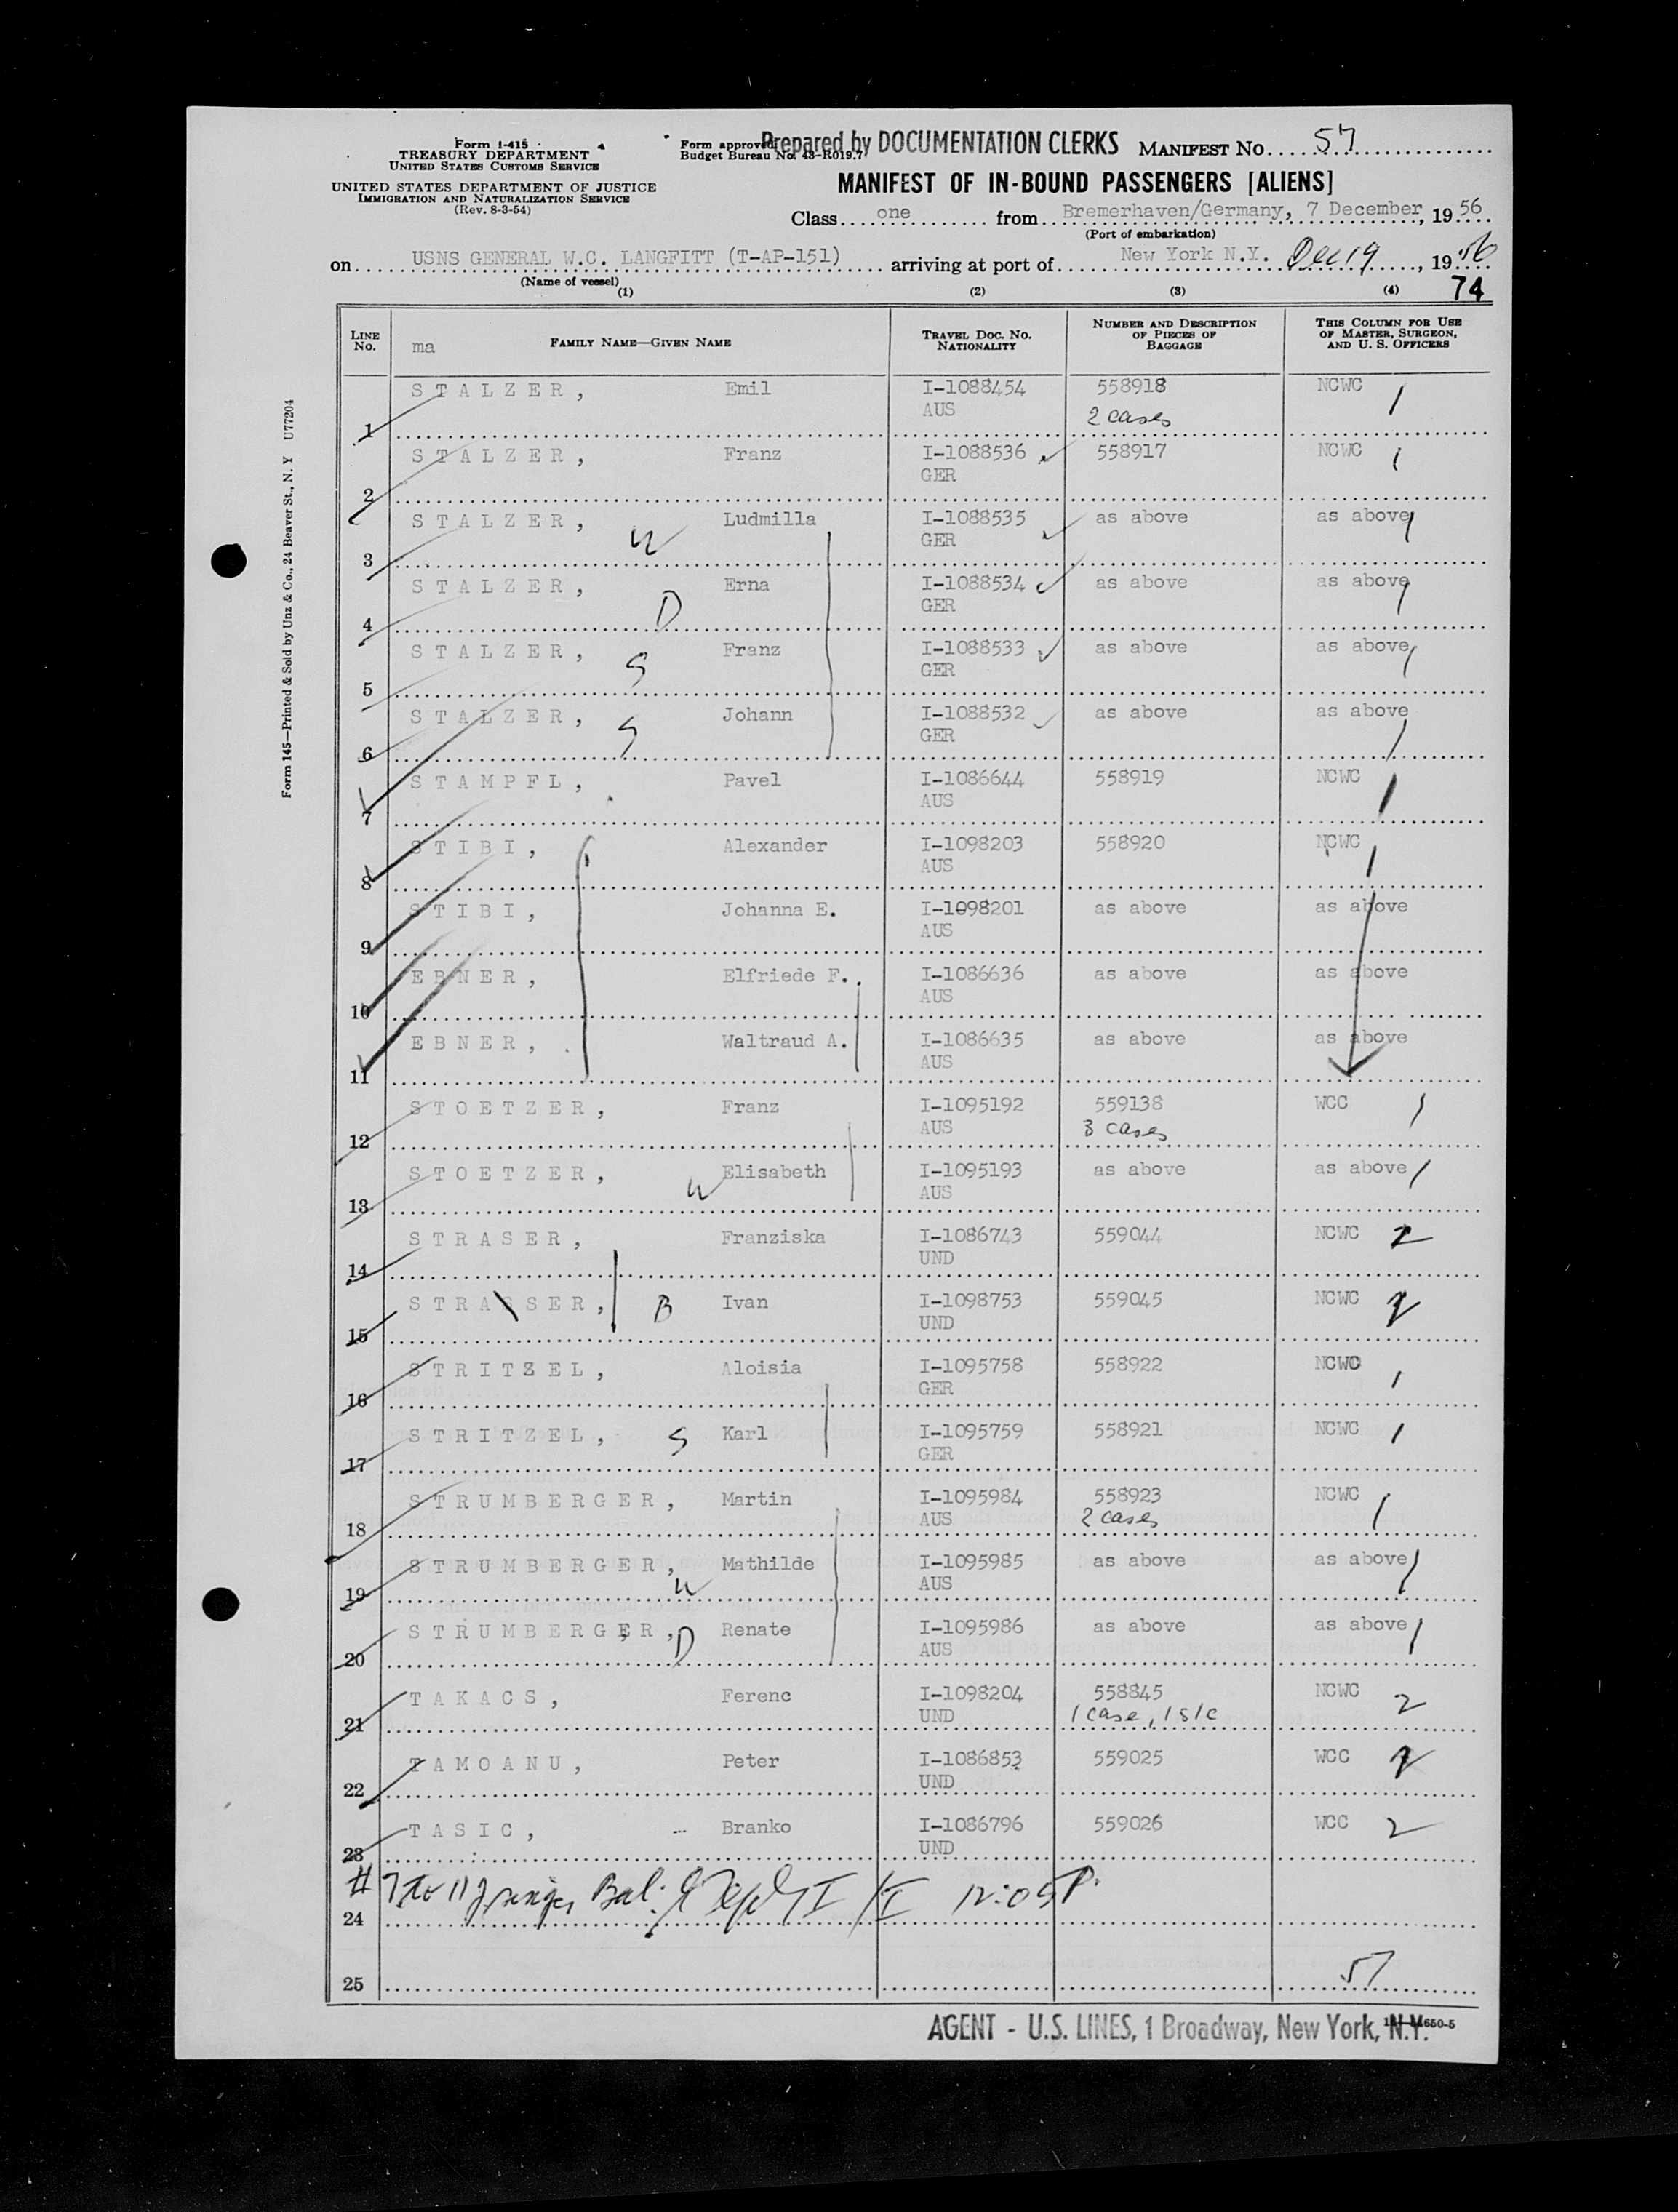 Form I-415
TREASURY DEPARTMENT
UNITED STATES CUSTOMS SERVICE
UNITED STATES DEPARTMENT OF JUSTICE
IMMIGRATION AND NATURALIZATION SERVICE
(Rev. 8-3-54)
Form approved
Budget Bureau No. 43-R019.7
Prepared by DOCUMENTATION CLERKS
MANIFEST No. 57
MANIFEST OF IN-BOUND PASSENGERS [ALIENS]
Class one from Bremerhaven/Germany, 7 December, 1956
(Port of embarkation)
on USNS GENERAL W.C. LANGFITT (T-AP-151) arriving at port of New York N.Y. Dec 19, 1956
(Name of vessel)
(1) (2) (3) (4) 74
LINE No. ma FAMILY NAME—GIVEN NAME TRAVEL DOC. NO. NATIONALITY NUMBER AND DESCRIPTION OF PIECES OF BAGGAGE THIS COLUMN FOR USE OF MASTER, SURGEON, AND U. S. OFFICERS
1 STALZER, Emil I-1088454 AUS 558918 2 cases NCWC 1
2 STALZER, Franz I-1088536 GER 558917 NCWC 1
3 STALZER, W Ludmilla I-1088535 GER as above as above 1
4 STALZER, D Erna I-1088534 GER as above as above 1
5 STALZER, S Franz I-1088533 GER as above as above 1
6 STALZER, S Johann I-1088532 GER as above as above 1
7 STAMPFL, Pavel I-1086644 AUS 558919 NCWC 1
8 STIBI, Alexander I-1098203 AUS 558920 NCWC 1
9 STIBI, Johanna E. I-1098201 AUS as above as above
10 EBNER, Elfriede F. I-1086636 AUS as above as above
11 EBNER, Waltraud A. I-1086635 AUS as above as above
12 STOETZER, Franz I-1095192 AUS 559138 3 cases WCC 1
13 STOETZER, W Elisabeth I-1095193 AUS as above as above 1
14 STRASER, Franziska I-1086743 UND 559044 NCWC 2
15 STRASSER, B Ivan I-1098753 UND 559045 NCWC 2
16 STRITZEL, Aloisia I-1095758 GER 558922 NCWC 1
17 STRITZEL, S Karl I-1095759 GER 558921 NCWC 1
18 STRUMBERGER, Martin I-1095984 AUS 558923 2 cases NCWC 1
19 STRUMBERGER, W Mathilde I-1095985 AUS as above as above 1
20 STRUMBERGER, D Renate I-1095986 AUS as above as above 1
21 TAKACS, Ferenc I-1098204 UND 558845 1 case, 1 s/c NCWC 2
22 TAMOANU, Peter I-1086853 UND 559025 WCC 2
23 TASIC, Branko I-1086796 UND 559026 WCC 2
24 # 7 to 11 12:05 P.
25 57
AGENT - U.S. LINES, 1 Broadway, New York, N.Y.
Form 145—Printed & Sold by Unz & Co., 24 Beaver St., N. Y U77204